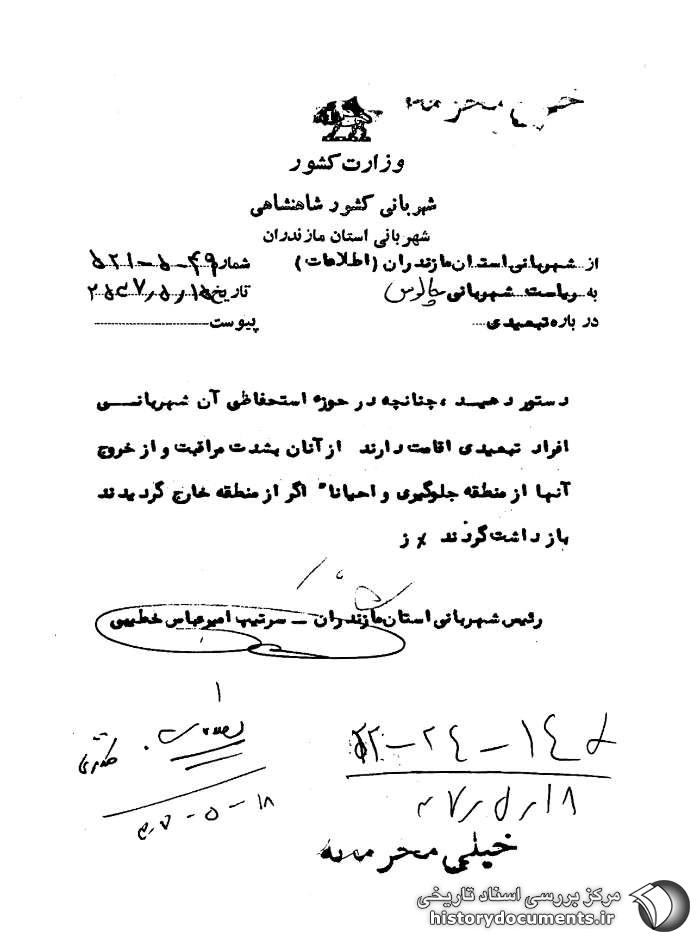 خیلی محرمانه
وزارت کشور
شهربانی کشور شاهنشاهی
شهربانی استان مازندران
از شهربانی استان مازندران (اطلاعات) شماره ۴۹-۵-۵۲۱
به ریاست شهربانی چالوس تاریخ ۲۵۳۷/۵/۱۵
در باره تبعیدی پیوست
دستور دهید ، چنانچه در حوزه استحفاظی آن شهربانی
افراد تبعیدی اقامت دارند از آنان بشدت مراقبت و از خروج
آنها از منطقه جلوگیری و احیانا" اگر از منطقه خارج گردیدند
بازداشت گردند
رئیس شهربانی استان مازندران – سرتیپ امیرعباس خطیبی
۲۴-۱۴۵
۳۷/۵/۱۸
۱۸-۵-۳۷
خیلی محرمانه
مرکز بررسی اسناد تاریخی
historydocuments.ir